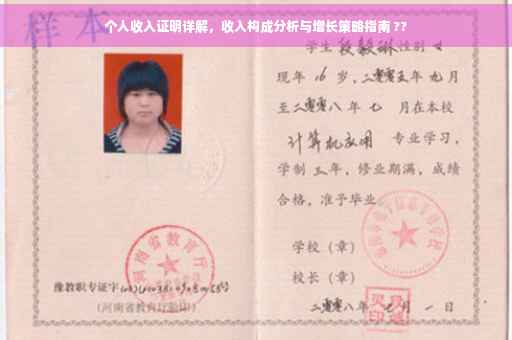 个人收入证明详解，收入构成分析与增长策略指南 ??
样本
学生段毅琳性别 女
现年 16 岁，二零零五年 九月
至二零零八年 七 月在本校
计算机应用 专业学习，
学制 三年，修业期满，成绩
合格，准予毕业
学校（章）
校长（章）
河南省教育厅
豫教职专证字
(河南省教育厅验印)
二零零八年 七 月 一 日